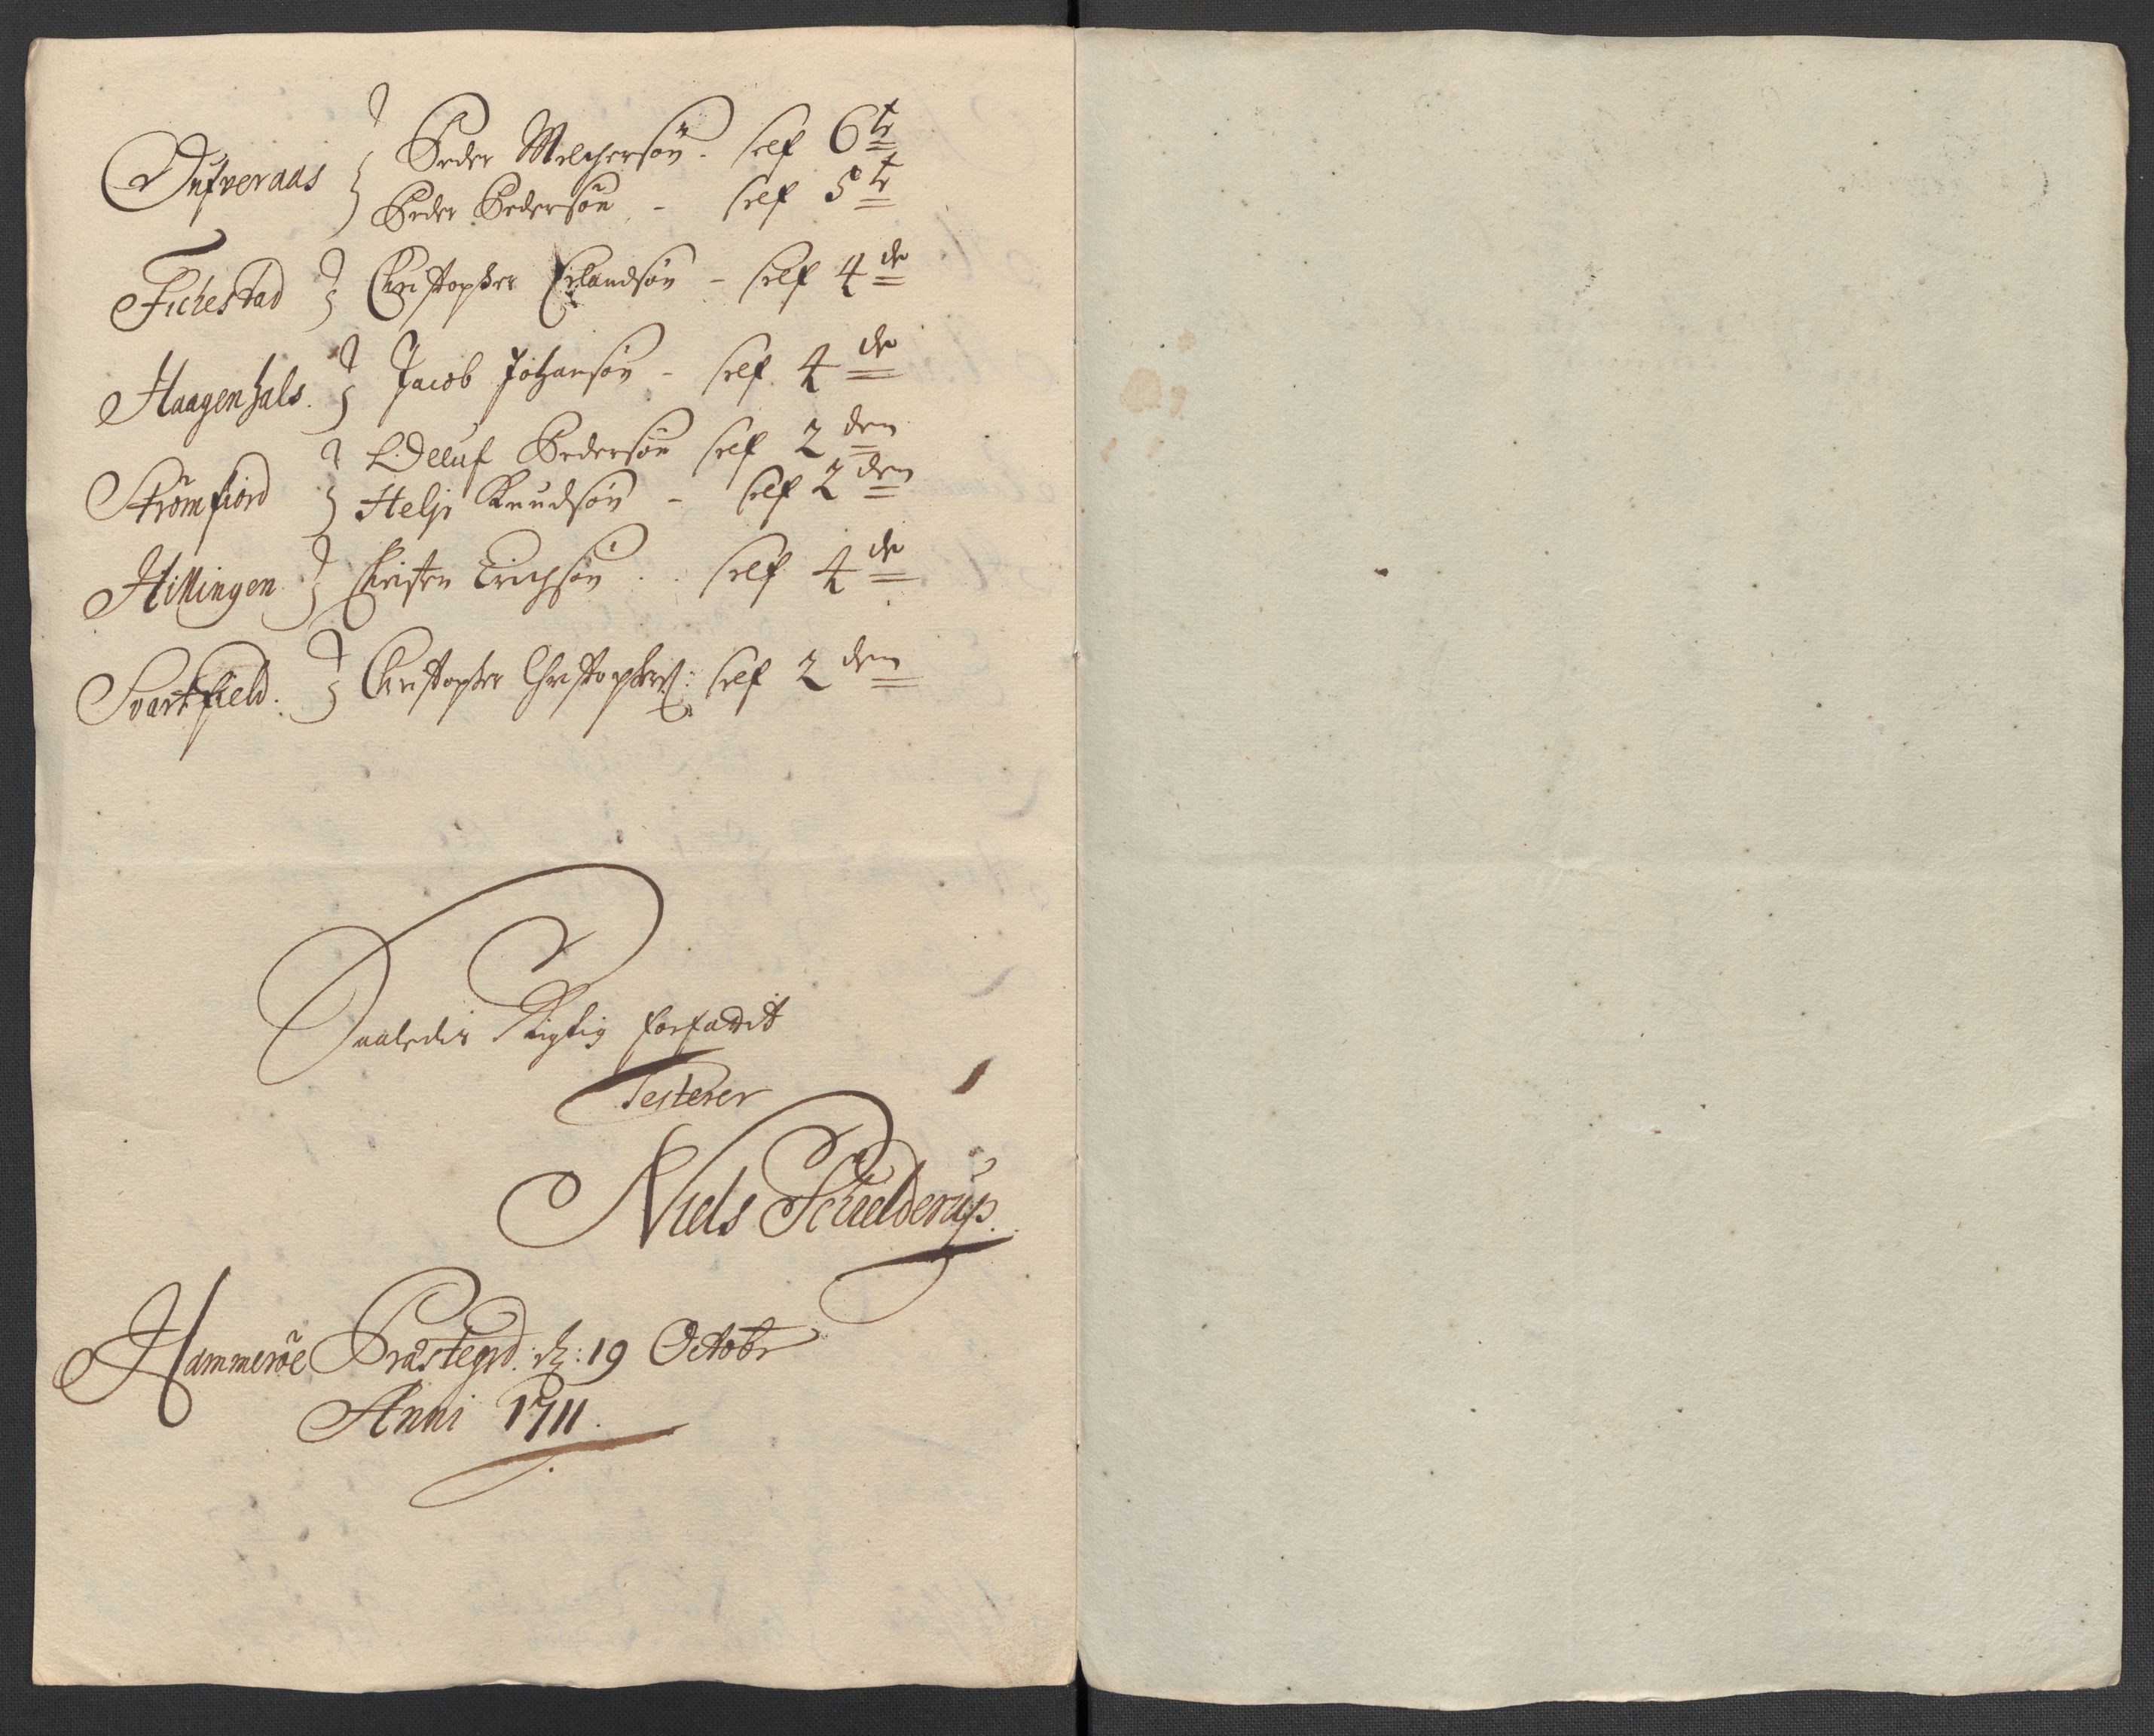 Dufveraas } Peder Melchersøn - self 6te
Peder Pedersøn - self 5te
Fichestad } Christopher Erlandsøn - self 4de
Haagenhals. } Jacob Johansøn - self 4de
Strømfiord } Oeluf Pedersøn self 2den
Helje Knudsøn - self 2den
Hillingen } Christen Erichsøn .. self 4de
Svartfield. } Christopher Christophers: self 2den
Saaledis Rigtig forfattit
Testerer
Niels Schielderup.
Hammerøe Præstegrd: d: 19 Octobr
Anni 1711.